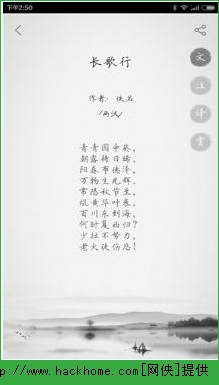 下午2:50
长歌行
文
注
译
赏
作者：佚名
/两汉/
青青园中葵，
朝露待日晞。
阳春布德泽，
万物生光辉。
常恐秋节至，
焜黄华叶衰。
百川东到海，
何时复西归？
少壮不努力，
老大徒伤悲！
http://www.hackhome.com[网侠]提供